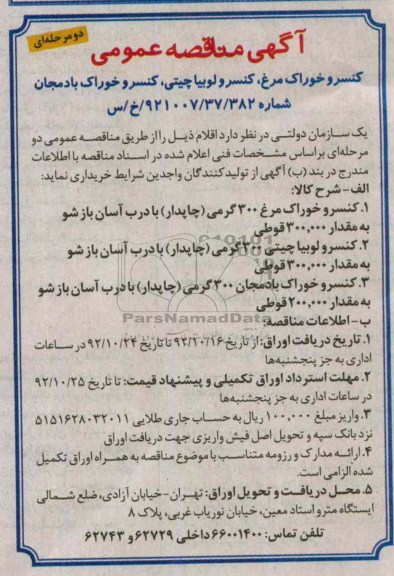 دو مرحله‌ای
آگهی مناقصه عمومی
کنسرو خوراک مرغ، کنسرو لوبیا چیتی، کنسرو خوراک بادمجان
شماره ۹۲۱۰۰۷/۳۷/۳۸۲/خ/س
یک سازمان دولتی در نظر دارد اقلام ذیل را از طریق مناقصه عمومی دو
مرحله‌ای براساس مشخصات فنی اعلام شده در اسناد مناقصه با اطلاعات
مندرج در بند (ب) آگهی از تولیدکنندگان واجدین شرایط خریداری نماید:
الف- شرح کالا:
۱. کنسرو خوراک مرغ ۳۰۰ گرمی (چاپدار) با درب آسان باز شو
به مقدار ۳۰۰,۰۰۰ قوطی
۲. کنسرو لوبیا چیتی ۳۰۰ گرمی (چاپدار) با درب آسان باز شو
به مقدار ۳۰۰,۰۰۰ قوطی
۳. کنسرو خوراک بادمجان ۳۰۰ گرمی (چاپدار) با درب آسان باز شو
به مقدار ۲۰۰,۰۰۰ قوطی
ParsNamadData
ب- اطلاعات مناقصه:
۱. تاریخ دریافت اوراق: از تاریخ ۹۲/۱۰/۱۶ تا تاریخ ۹۲/۱۰/۲۴ در ساعات
اداری به جز پنجشنبه‌ها
۲. مهلت استرداد اوراق تکمیلی و پیشنهاد قیمت: تا تاریخ ۹۲/۱۰/۲۵
در ساعات اداری به جز پنجشنبه‌ها
۳. واریز مبلغ ۱۰۰,۰۰۰ ریال به حساب جاری طلایی ۵۱۵۱۶۲۸۰۳۲۰۱۱
نزد بانک سپه و تحویل اصل فیش واریزی جهت دریافت اوراق
۴. ارائه مدارک و رزومه متناسب با موضوع مناقصه به همراه اوراق تکمیل
شده الزامی است.
۵. محل دریافت و تحویل اوراق: تهران- خیابان آزادی، ضلع شمالی
ایستگاه مترو استاد معین، خیابان نوریاب غربی، پلاک ۸
تلفن تماس: ۶۶۰۰۱۴۰۰ داخلی ۶۲۷۲۹ و ۶۲۷۴۳